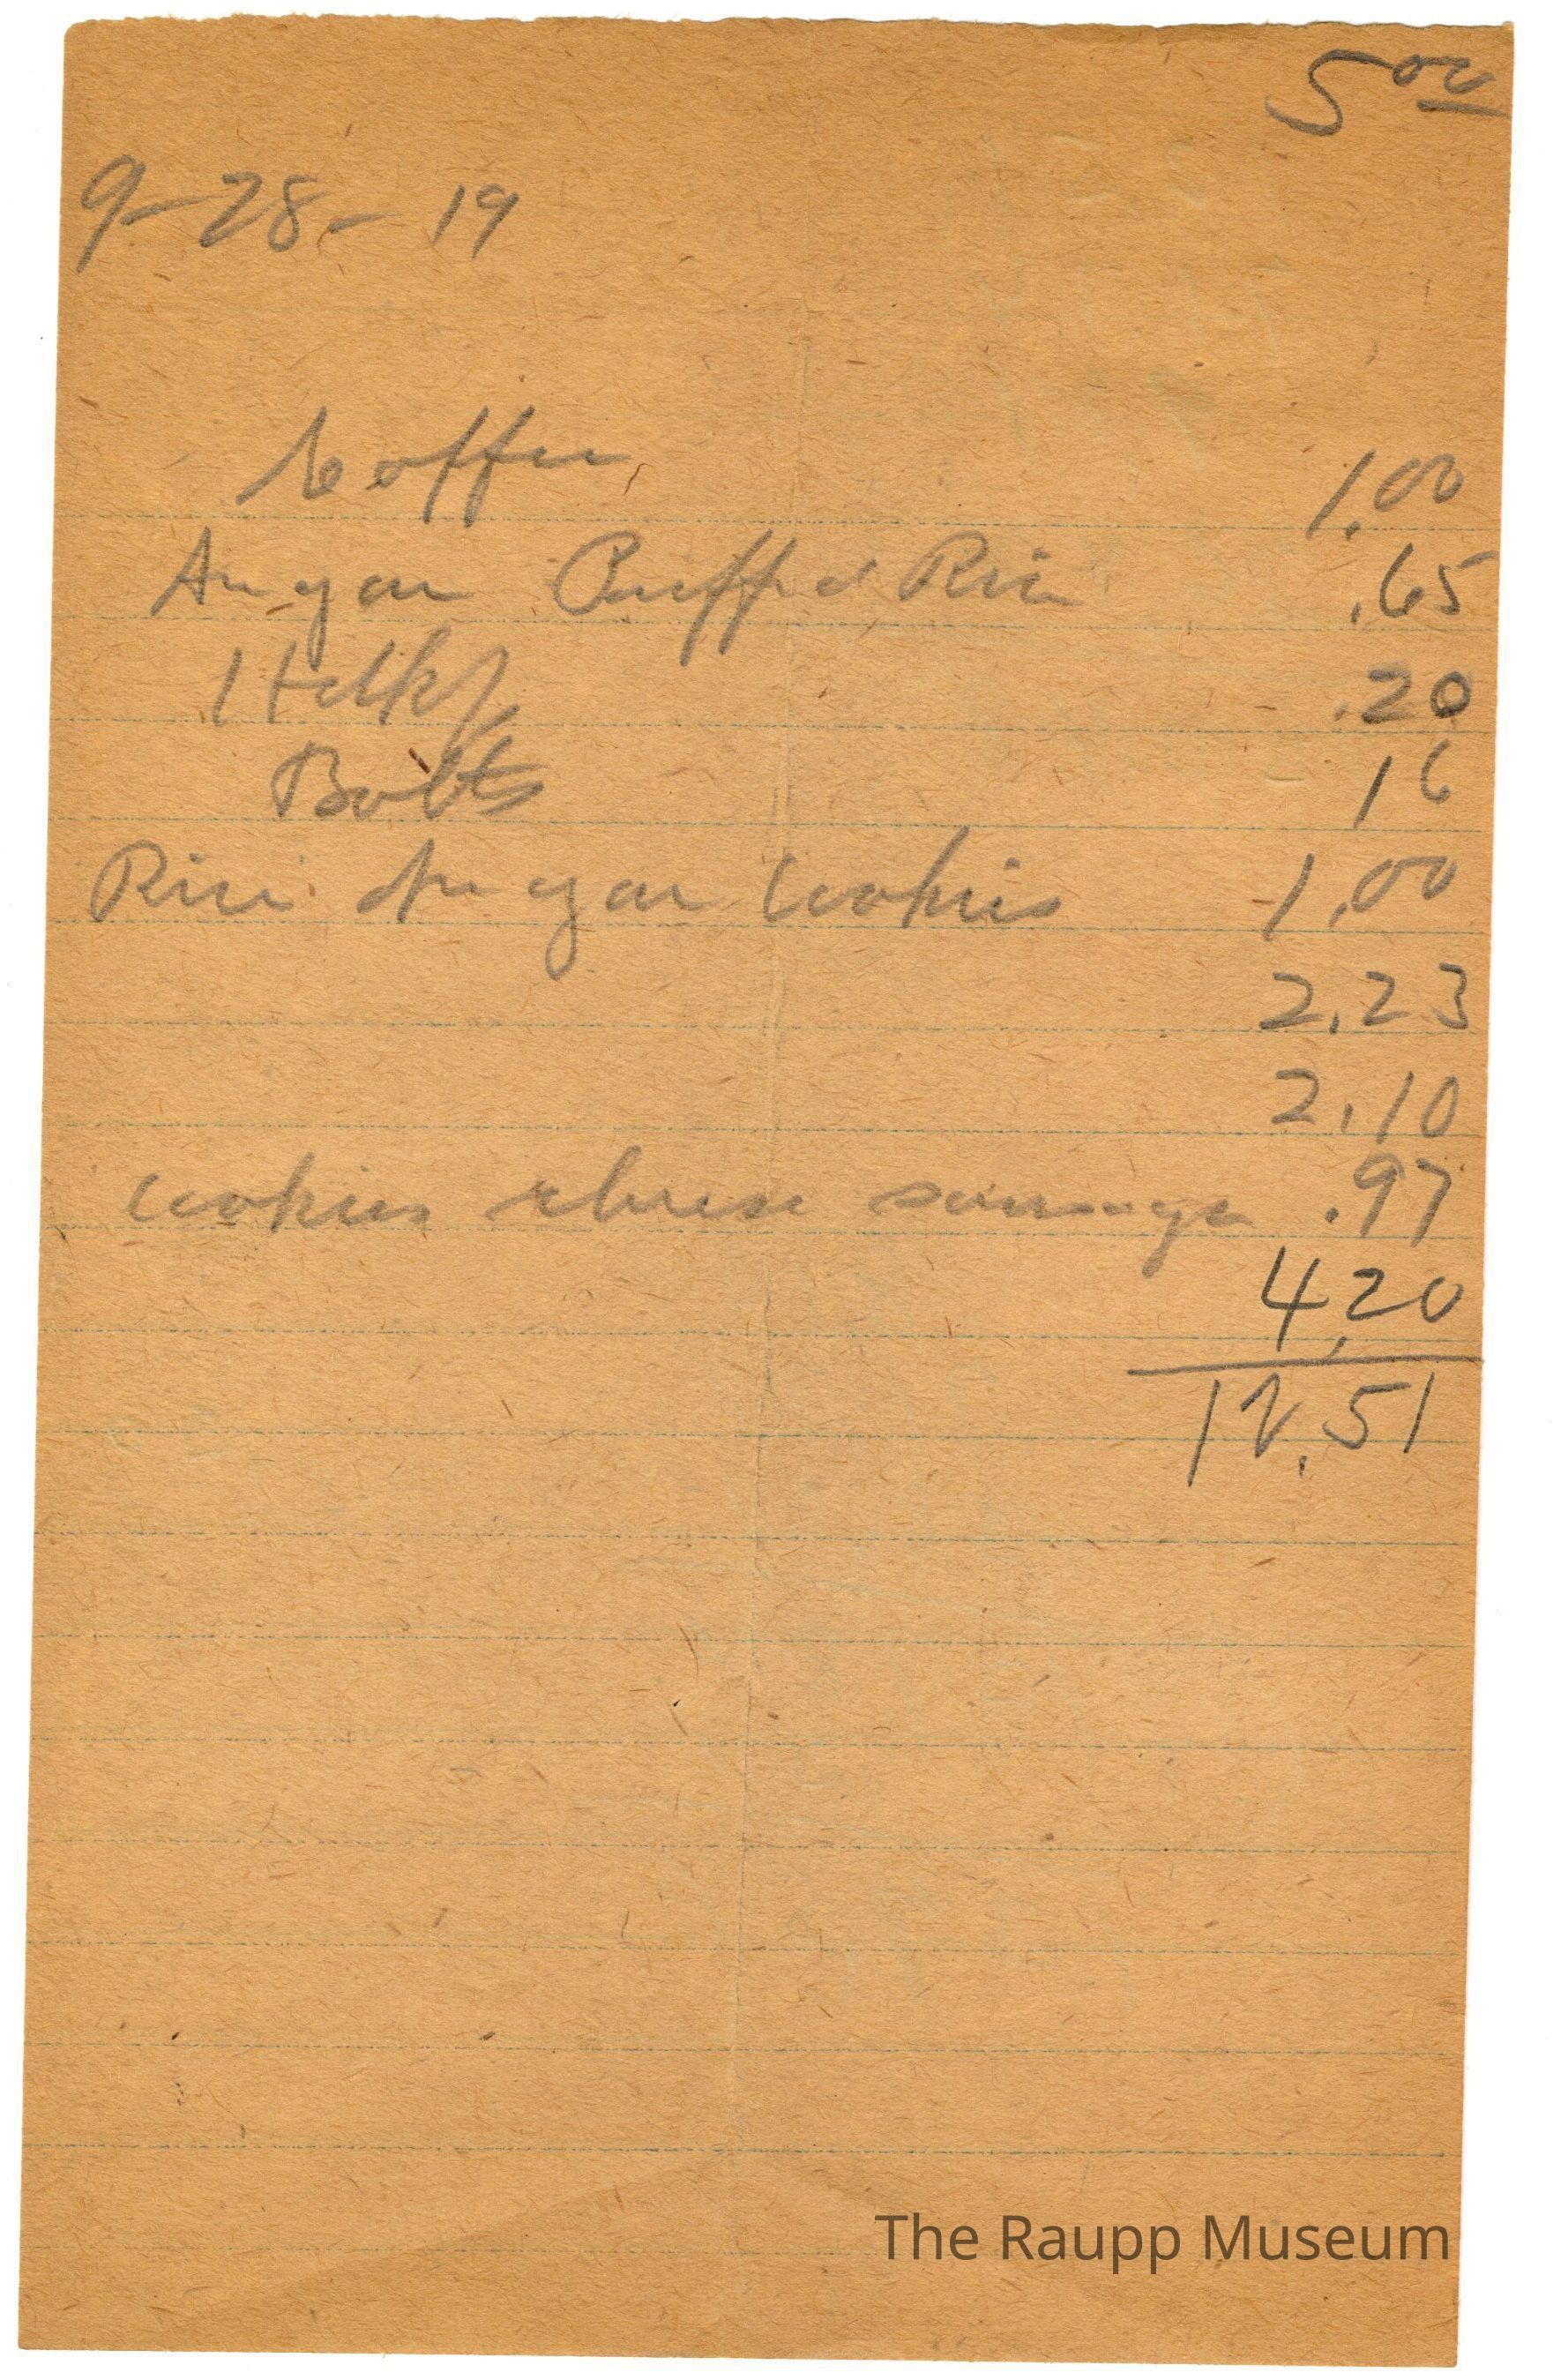 5 00
9-28-19
Coffee 1.00
Sugar Puffed Rice .65
.20
Bolts 16
Rice Sugar Cookies 1.00
2.23
2.10
Cookies cheese sausage .97
4.20
12.51
The Raupp Museum